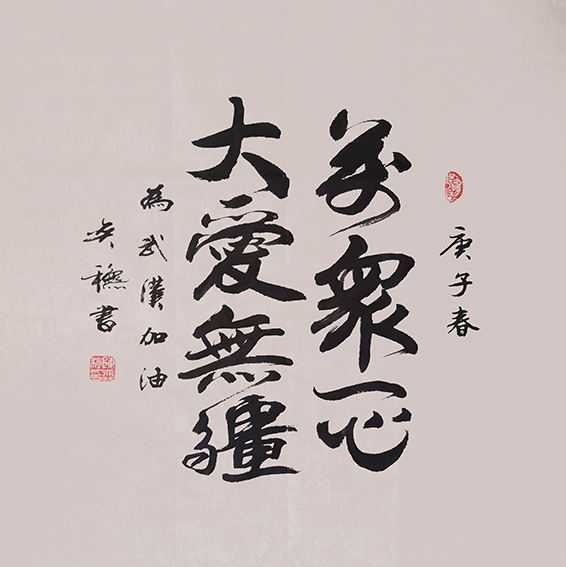 庚子春
萬衆一心
大愛無疆
為武漢加油
書